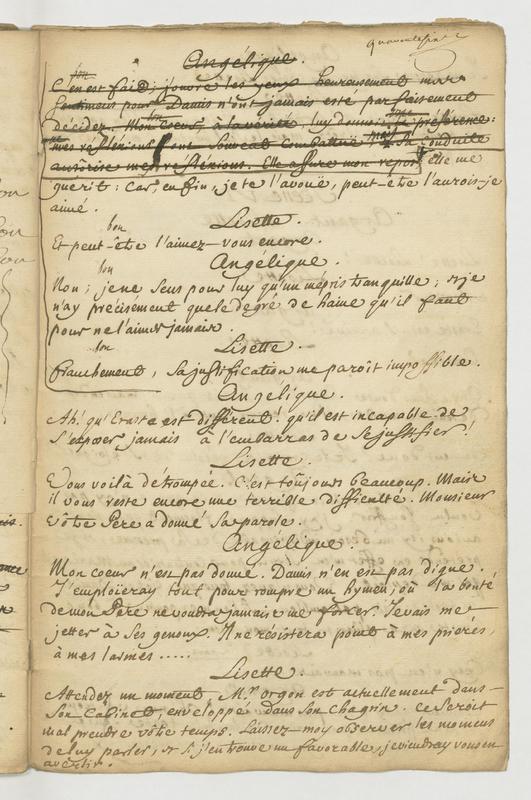 quarante sixe
Angélique.
bon
C'en est fait; j'ouvre les yeux heureusement mes
sentimens pour Damis n'ont jamais esté parfaitement
décidez. Mon coeur, à la verité, luy donnoit la préférence:
mes reflexions l'ont souvent combattuë. mais sa conduite
autorise mes reflexions. Elle assure mon repos, elle me
guerit: car, enfin, je te l'avouë, peut-être l'aurois-je
aimé.
bon
Lisette.
Et peut-être l'aimez-vous encore.
bon
Angélique.
Non; je ne sens pour luy qu'un mépris tranquille; & je
n'ay précisément que le degré de haine qu'il faut
pour ne l'aimer jamais.
bon
Lisette.
franchement, sa justification me paroît impossible.
Angelique.
Ah! qu'Eraste est différent! qu'il est incapable de
s'exposer jamais à l'embarras de se justifier!
Lisette.
Vous voilà détrompée. C'est toûjours beaucoup. Mais
il vous reste encore une terrible difficulté. Monsieur
vôtre Pere a donné sa parole.
Angélique.
Mon coeur n'est pas donné. Damis n'en est pas digne.
J'emploieray tout pour rompre un hymen, où la bonté
de mon Pere ne voudra jamais me forcer. Je vais me
jetter à ses genoux. Il ne résistera point à mes prieres,
à mes larmes .....
Lisette.
Attendez un moment, Mr. Orgon est actuellement dans
son Cabinet, enveloppé dans son chagrin. ce seroit
mal prendre vôtre temps. Laissez-moy observer les momens
de luy parler, & si j'en trouve un favorable, je viendray vous en
avertir.